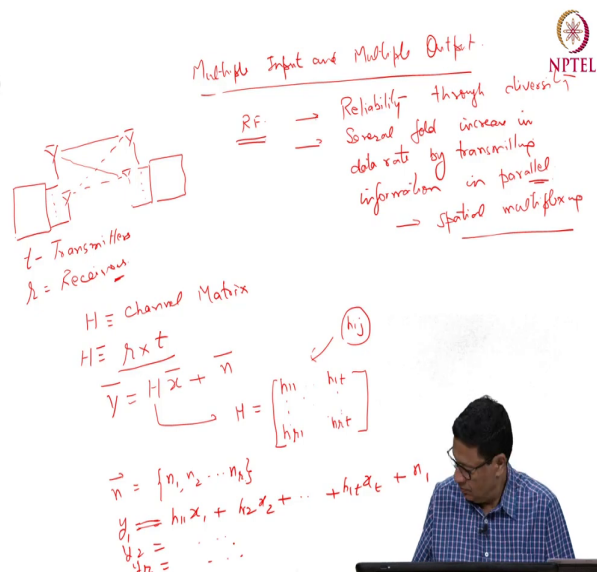 NPTEL
Multiple Input and Multiple Output.
RF → Reliability through diversity
→ Several fold increase in
data rate by transmitting
information in parallel
→ Spatial multiplexing
t - Transmitters
r = Receivers
H ≡ Channel Matrix
H ≡ r x t
y̅ = H x̅ + n̅
hij
H = [h11 h1t
hr1 hrt]
n̅ = {n1, n2 ... nr}
y1 = h11x1 + h2x2 + .. + h1txt + n1
y2 = ....
yr = ....